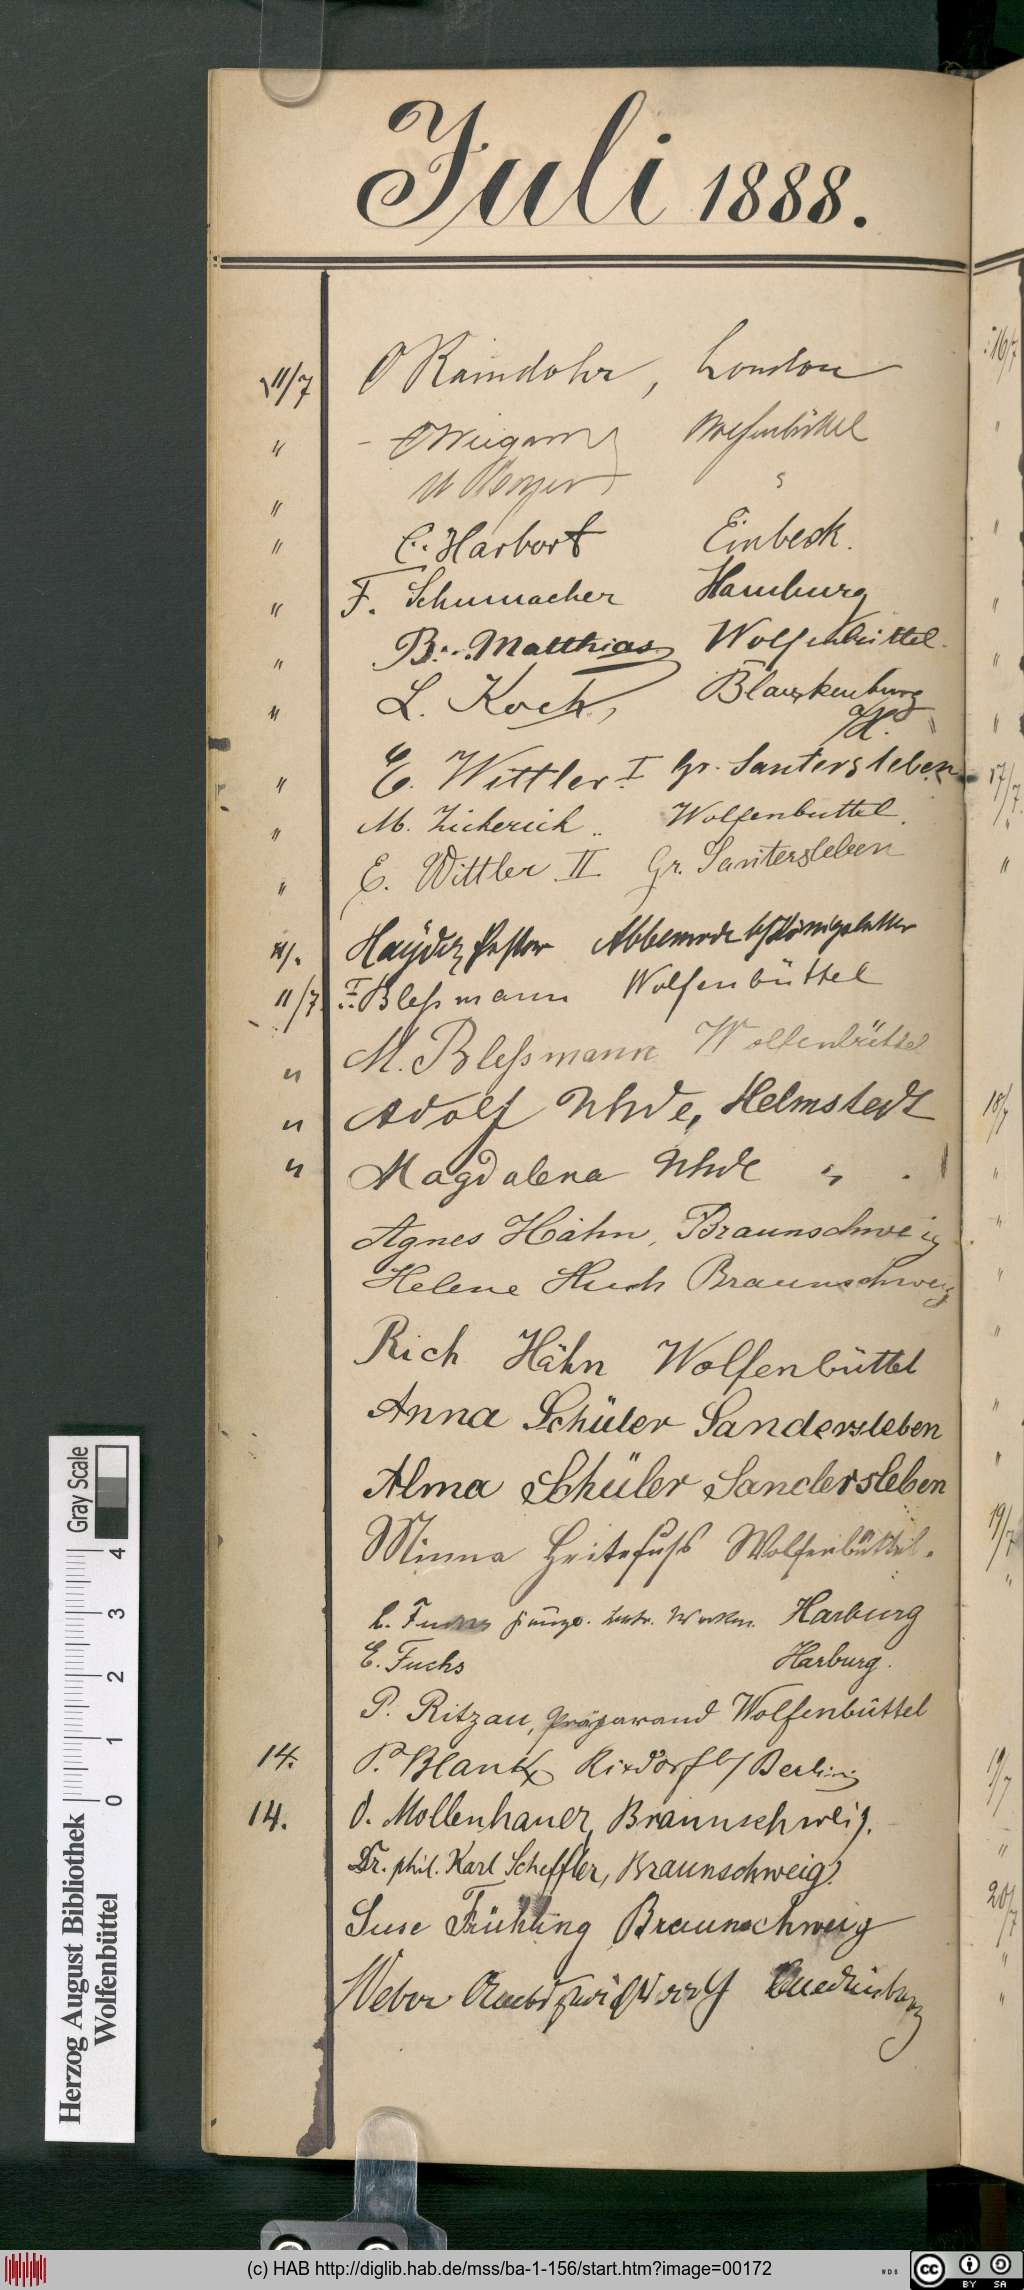 Juli 1888.
11/7 O Ramdohr, London
" Wolfenbüttel
" "
" C. Harbort Einbeck.
" F. Schumacher Hamburg
" B. Matthias Wolfenbüttel.
" L. Koch, Blankenburg
a/H.
" E. Wittler I Gr. Santersleben
" M. Zickerick Wolfenbüttel.
" E. Wittler II Gr. Santersleben
Pastor Abbenrode b/Königslutter
11/7 F. Bleßmann Wolfenbüttel
" M. Bleßmann Wolfenbüttel
" Adolf Uhde, Helmstedt
" Magdalena Uhde "
Agnes Hähn, Braunschweig
Helene Huch Braunschweig
Rich Hähn Wolfenbüttel
Anna Schüler Sandersleben
Alma Schüler Sandersleben
Minna Wolfenbüttel.
Harburg
E. Fuchs Harburg.
P. Ritzau, Präparand Wolfenbüttel
14. P. Blank Rixdorf b/ Berlin
14. O. Mollenhauer, Braunschweig.
Dr. phil. Karl Scheffler, Braunschweig.
Suse Frühling Braunschweig
Weber Quedlinburg
16/7
17/7
18/7
19/7
19/7
20/7
Herzog August Bibliothek
Wolfenbüttel
Gray Scale
0 1 2 3 4
(c) HAB http://diglib.hab.de/mss/ba-1-156/start.htm?image=00172
WDB
cc BY SA